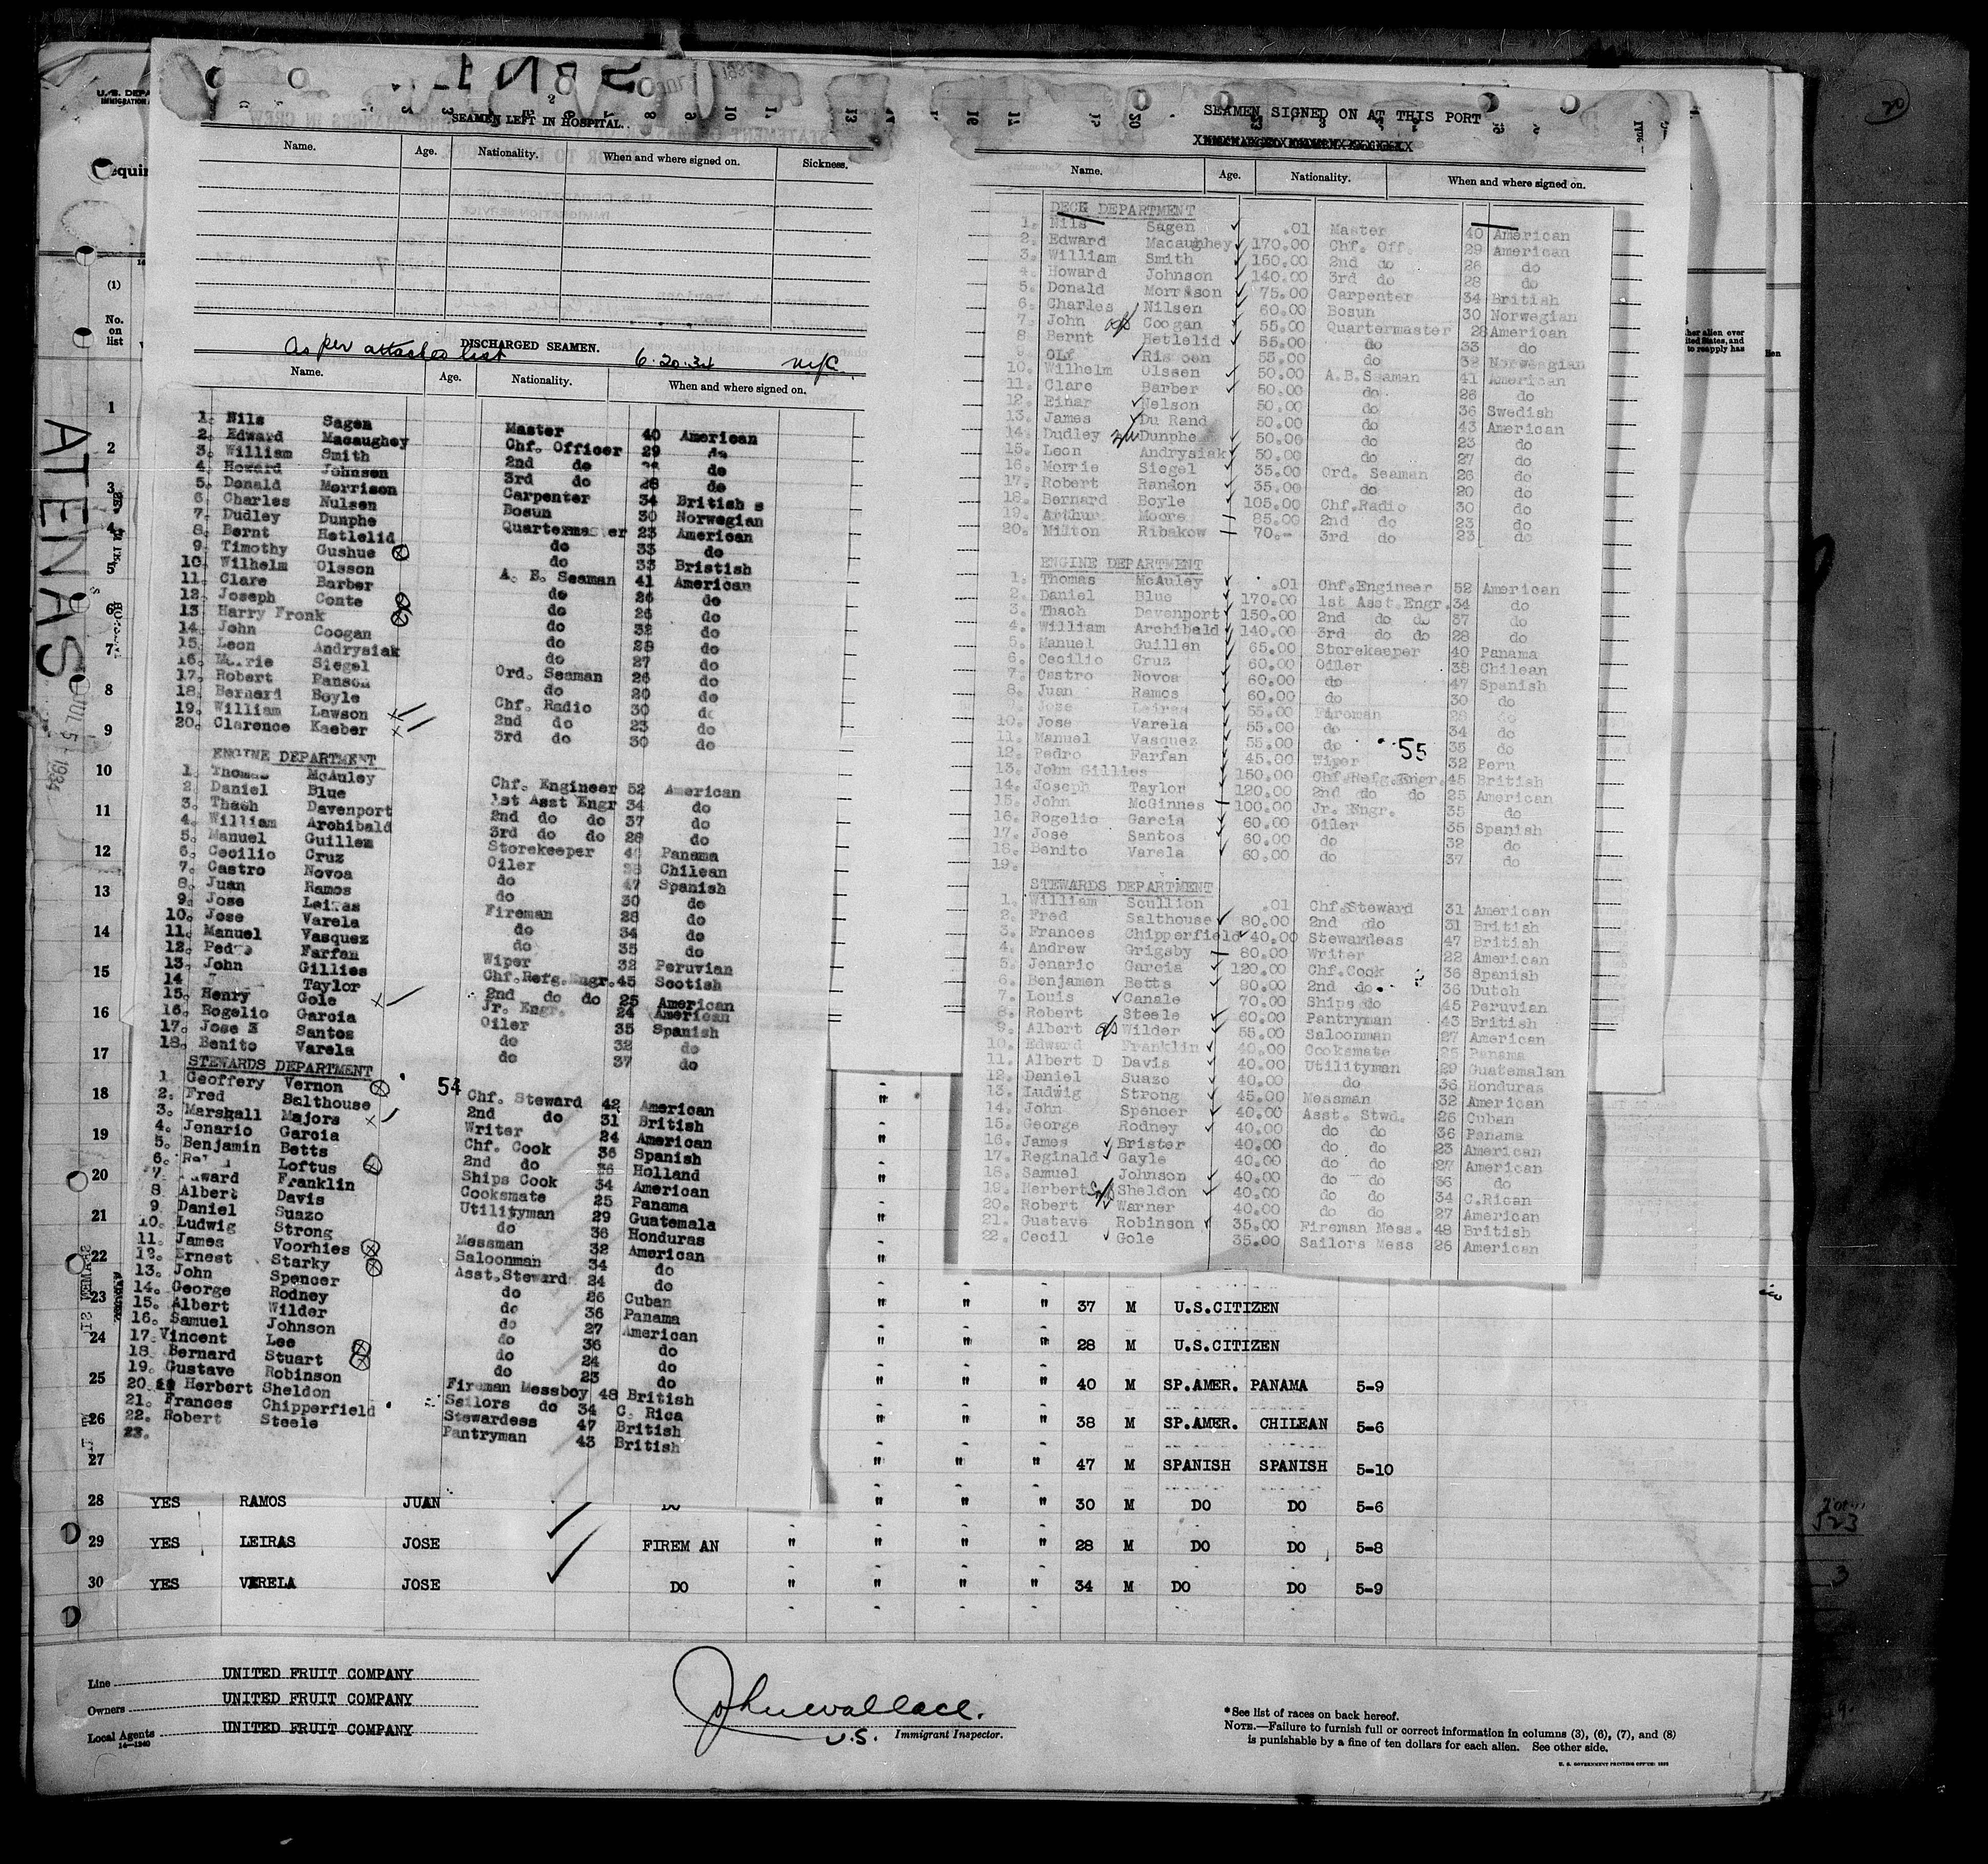 SEAMEN LEFT IN HOSPITAL.
Name. Age. Nationality. When and where signed on. Sickness.
DISCHARGED SEAMEN.
As per attached list 6-20-34
Name. Age. Nationality. When and where signed on.
1. Nils Sagen Master 40 American
2. Edward Macaughey Chf. Officer 29 do
3. William Smith 2nd do do
4. Howard Johnsen 3rd do 28 do
5. Donald Morrison Carpenter 34 British s
6. Charles Nulsen Bosun 30 Norwegian
7. Dudley Dunphe Quartermaster 23 American
8. Bernt Hetlelid do 33 do
9. Timothy Gushue do 33 Bristish
10. Wilhelm Olsson A. B. Seaman 41 American
11. Clare Barber do 26 do
12. Joseph Conte do 26 do
13 Harry Fronk do 32 do
14. John Coogan do 28 do
15. Leon Andrysiak do 27 do
16. Morrie Siegel Ord. Seaman 26 do
17. Robert Ranson do 20 do
18. Bernard Boyle Chf. Radio 30 do
19. William Lawson 2nd do 23 do
20. Clarence Kaeber 3rd do 30 do
ENGINE DEPARTMENT
1. Thomas McAuley Chf. Engineer 52 American
2. Daniel Blue 1st Asst Engr 34 do
3. Thash Davenport 2nd do do 37 do
4. William Archibald 3rd do do 28 do
5. Manuel Guillem Storekeeper 40 Panama
6. Cecilio Cruz Oiler 38 Chilean
7. Castro Novoa do 47 Spanish
8. Juan Ramos do 30 do
9. Jose Leiras Fireman 28 do
10. Jose Varela do 34 do
11. Manuel Vasquez do 35 do
12. Pedro Farfan Wiper 32 Peruvian
13. John Gillies Chf.Refg.Engr. 45 Scotish
14 Taylor 2nd do do 25 American
15. Henry Gole Jr. Engr. 24 American
16. Rogelio Garcia Oiler 35 Spanish
17. Jose Santos do 32 do
18. Benito Varela do 37 do
STEWARDS DEPARTMENT
54
1. Geoffery Vernon Chf. Steward 42 American
2. Fred Salthouse 2nd do 31 British
3. Marshall Majors Writer 24 American
4. Jenario Garcia Chf. Cook 36 Spanish
5. Benjamin Betts 2nd do 36 Holland
6. Loftus Ships Cook 34 American
7. Franklin Cooksmate 25 Panama
8 Albert Davis Utilityman 29 Guatemala
9. Daniel Suazo do 36 Honduras
10. Ludwig Strong Messman 32 American
11. James Voorhies Saloonman 34 do
12. Ernest Starky Asst.Steward 24 do
13. John Spencer do 26 Cuban
14. George Rodney do 36 Panama
15. Albert Wilder do 27 American
16. Samuel Johnson do 36 do
17. Vincent Lee do 24 do
18. Bernard Stuart do 23 do
19. Gustave Robinson Fireman Messboy 48 British
20. Herbert Sheldon Sailors do 34 C. Rica
21. Frances Chipperfield Stewardess 47 British
22. Robert Steele Pantryman 43 British
23.
SEAMEN SIGNED ON AT THIS PORT
Name. Age. Nationality. When and where signed on.
DECK DEPARTMENT
1. Nils Sagen .01 Master 40 American
2. Edward Macaughey 170.00 Chf. Off. 29 American
3. William Smith 150.00 2nd do 26 do
4. Howard Johnson 140.00 3rd do 28 do
5. Donald Morrison 75.00 Carpenter 34 British
6. Charles Nilsen 60.00 Bosun 30 Norwegian
7. John Coogan 55.00 Quartermaster 28 American
8 Bernt Hetlelid 55.00 do 33 do
9. Olf Ris oen 55.00 do 32 Norwegian
10. Wilhelm Olssen 50.00 A.B.Seaman 41 American
11. Clare Barber 50.00 do 26 do
12. Einar Nelson 50.00 do 36 Swedish
13. James Du Rand 50.00 do 43 American
14. Dudley Dunphe 50.00 do 23 do
15. Leon Andrysiak 50.00 do 27 do
16. Morrie Siegel 35.00 Ord. Seaman 26 do
17. Robert Randon 35.00 do 20 do
18. Bernard Boyle 105.00 Chf.Radio 30 do
19. Arthur Moore 85.00 2nd do 23 do
20. Milton Ribakow 70.- 3rd do 23 do
ENGINE DEPARTMENT
1. Thomas McAuley .01 Chf.Engineer 52 American
2. Daniel Blue 170.00 1st Asst.Engr. 34 do
3. Thach Davenport 150.00 2nd do do 37 do
4. William Archibald 140.00 3rd do do 28 do
5. Manuel Guillen 65.00 Storekeeper 40 Panama
6. Cecilio Cruz 60.00 Oiler 38 Chilean
7. Castro Novoa 60.00 do 47 Spanish
8. Juan Ramos 60.00 do 30 do
9. Jose Leiras 55.00 Fireman 28 do
10. Jose Varela 55.00 do 34 do
11. Manuel Vasquez 55.00 do 35 do
55
12. Pedro Farfan 45.00 Wiper 32 Peru
13. John Gillies 150.00 Chf.Refg.Engr. 45 British
14. Joseph Taylor 120.00 2nd do do 25 American
15. John McGinnes 100.00 Jr. Engr. 35 do
16. Rogelio Garcia 60.00 Oiler 35 Spanish
17. Jose Santos 60.00 do 32 do
18. Benito Varela 60.00 do 37 do
19.
STEWARDS DEPARTMENT
1. William Scullion .01 Chf.Steward 31 American
2. Fred Salthouse 80.00 2nd do 31 British
3. Frances Chipperfield 40.00 Stewardess 47 British
4. Andrew Grigsby 80.00 Writer 22 American
5. Jenario Garcia 120.00 Chf.Cook 36 Spanish
6. Benjamen Betts 80.00 2nd do. 36 Dutch
7. Louis Canale 70.00 Ships do 45 Peruvian
8. Robert Steele 60.00 Pantryman 43 British
9. Albert Wilder 55.00 Saloonman 27 American
10. Edward Franklin 40.00 Cooksmate 25 Panama
11. Albert D Davis 40.00 Utilityman 29 Guatemalan
12. Daniel Suazo 40.00 do 36 Honduras
13. Ludwig Strong 45.00 Messman 32 American
14. John Spencer 40.00 Asst. Stwd. 26 Cuban
15. George Rodney 40.00 do do 36 Panama
16. James Brister 40.00 do do 23 American
17. Reginald Gayle 40.00 do do 27 American
18. Samuel Johnson 40.00 do do 36 do
19. Herbert Sheldon 40.00 do do 34 C.Rican
20. Robert Warner 40.00 do do 27 American
21. Gustave Robinson 35.00 Fireman Mess. 48 British
22. Cecil Gole 35.00 Sailors Mess 26 American
ATENAS
JUL 5 1934
(1)
No. on list
1
2
3
4
5
6
7
8
9
10
11
12
13
14
15
16
17
18 "
19 "
20 "
21 "
22 "
23 " " " 37 M U.S.CITIZEN
24 " " " 28 M U.S.CITIZEN
25 " " " 40 M SP.AMER. PANAMA 5-9
26 " " " 38 M SP.AMER. CHILEAN 5-6
27 " " " 47 M SPANISH SPANISH 5-10
28 YES RAMOS JUAN DO " " " 30 M DO DO 5-6
29 YES LEIRAS JOSE FIREM AN " " " " 28 M DO DO 5-8
30 YES VERELA JOSE DO " " " " 34 M DO DO 5-9
Line UNITED FRUIT COMPANY
Owners UNITED FRUIT COMPANY
Local Agents UNITED FRUIT COMPANY
14-1240
John Wallace.
U.S. Immigrant Inspector.
*See list of races on back hereof.
NOTE.—Failure to furnish full or correct information in columns (3), (6), (7), and (8)
is punishable by a fine of ten dollars for each alien. See other side.
20